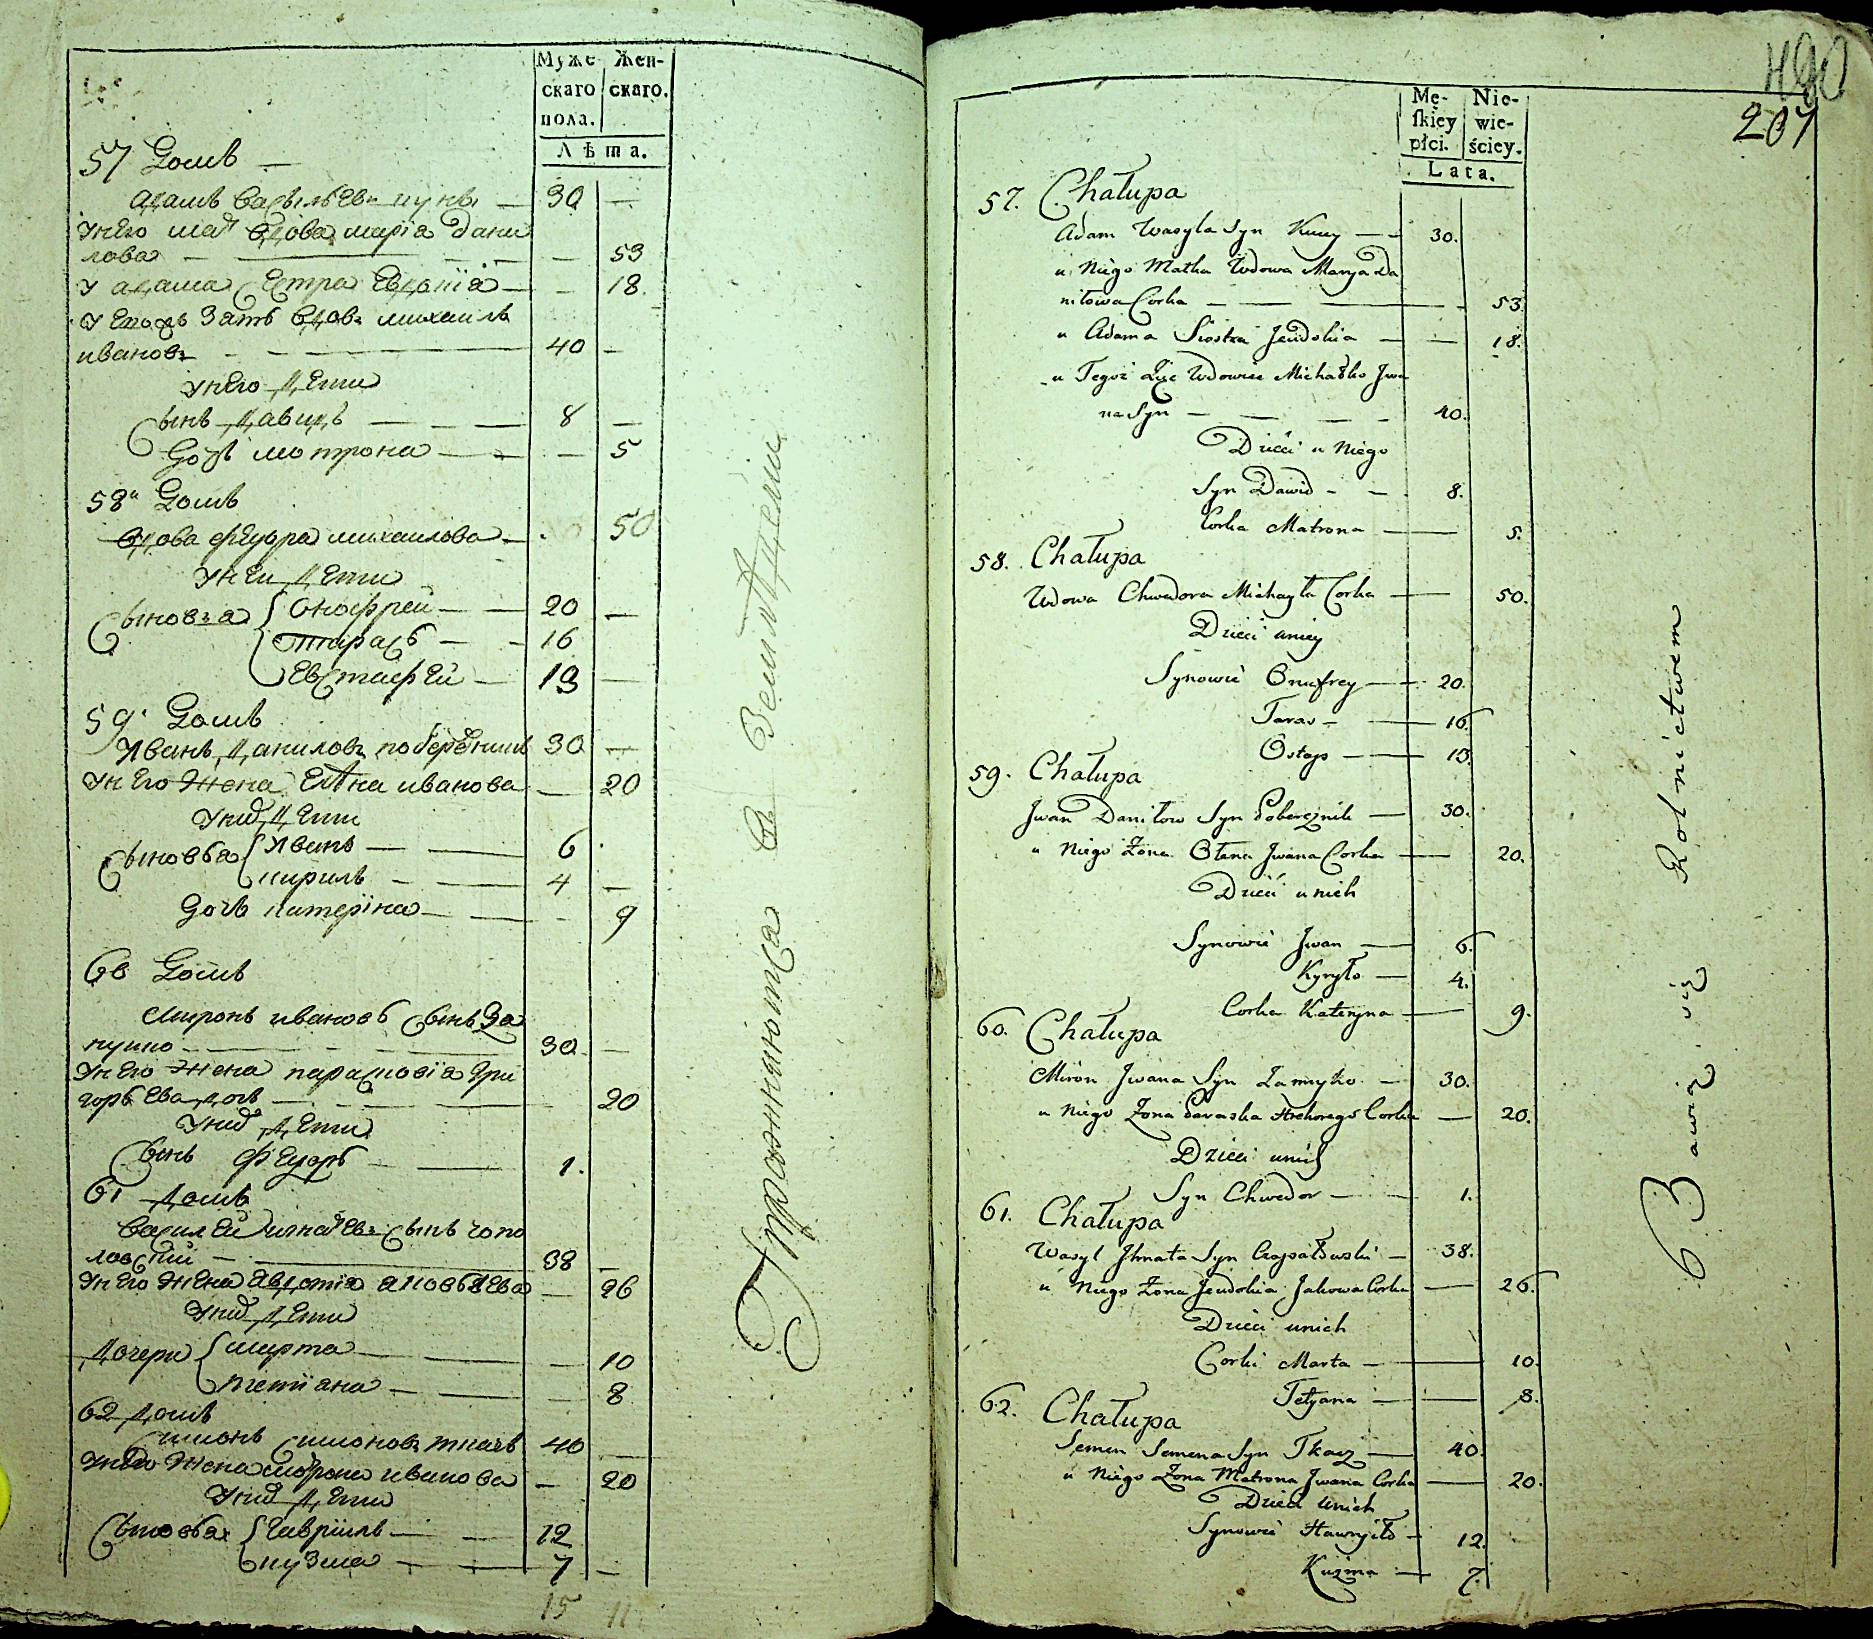 Муже-
скаго
пола.
Жен-
скаго.
Лѣта.
57 Домъ —
Адамъ Васильевъ — 30 —
У него мат вдова марія дани
лова — — 53
У адама сестра Евдокія — — 18
У зять вдовъ михаилъ
ивановъ — 40 —
У него дети
Сынъ давидъ — 8 —
Дочь мотрона — — 5
58 Домъ
вдова феудора михаилова — 50
У неи дети
Сыновья Онофреи — 20 —
тарасъ — 16
Евстафей — 13 —
59 Домъ
Иванъ даниловъ побережникъ 30 —
У него жена Елена иванова — 20
У них дети
Сыновья Иванъ — 6
кирилъ — 4 —
Дочь катерина — — 9
60 Домъ
Миронъ ивановъ сынъ За
— 30 —
У него жена парасковіа гри
горьева дочь — 20
У них дети
Сынъ Феудоръ — 1.
61 домъ
Василей игнатевъ сынъ чопо
ловскій — 38 —
У него жена Явдотіа аковлева — 26
У них дети
дочери марта — — 10
тетіана — — 8
62 домъ
Симонъ Симоновъ ткачъ 40
У него жена мотрона иванова — 20
У них дети
Сыновья гавріилъ — 12
кузма — 7 —
15 11
Упражняются въ Земледеліи
490
207
Mę-
ſkiey
płci.
Nie-
wie-
ściey.
Lata.
57. Chałupa
Adam Wasyla Syn — 30.
u Niego Matka Wdowa Marya Da
niłowa Corka — 53.
u Adama Siostra Jewdokia — 18.
u Tegoż Zięć Wdowiec Michałko Jwa
na Syn — 40.
Dzieci u Niego
Syn Dawid — 8.
Corka Matrona — 5.
58. Chałupa
Wdowa Chwedora Michayła Corka — 50.
Dzieci u niey
Synowie Onufrey — 20.
Taras — 16.
Ostap — 13.
59. Chałupa
Jwan Daniłow Syn Pobereznik — 30.
u Niego Żona Ołena Jwana Corka — 20.
Dzieci u nich
Synowie Jwan — 6.
Kyryło — 4.
Corka Kateryna — 9.
60. Chałupa
Miron Jwana Syn — 30.
u Niego Żona Paraska Hrehorego Corka — 20.
Dzieci u nich
Syn Chwedor — 1.
61. Chałupa
Wasyl Jhnata Syn Czopałowski — 38.
u Niego Żona Jewdokia Jakowa Corka — 26.
Dzieci u nich
Corki Marta — 10.
Tetyana — 8.
62. Chałupa
Semen Semena Syn Tkacz — 40.
u Niego Żona Matrona Jwana Corka — 20.
Dzieci u nich
Synowie Hawryło — 12.
Kuzma — 7.
Bawią się Rolnictwem